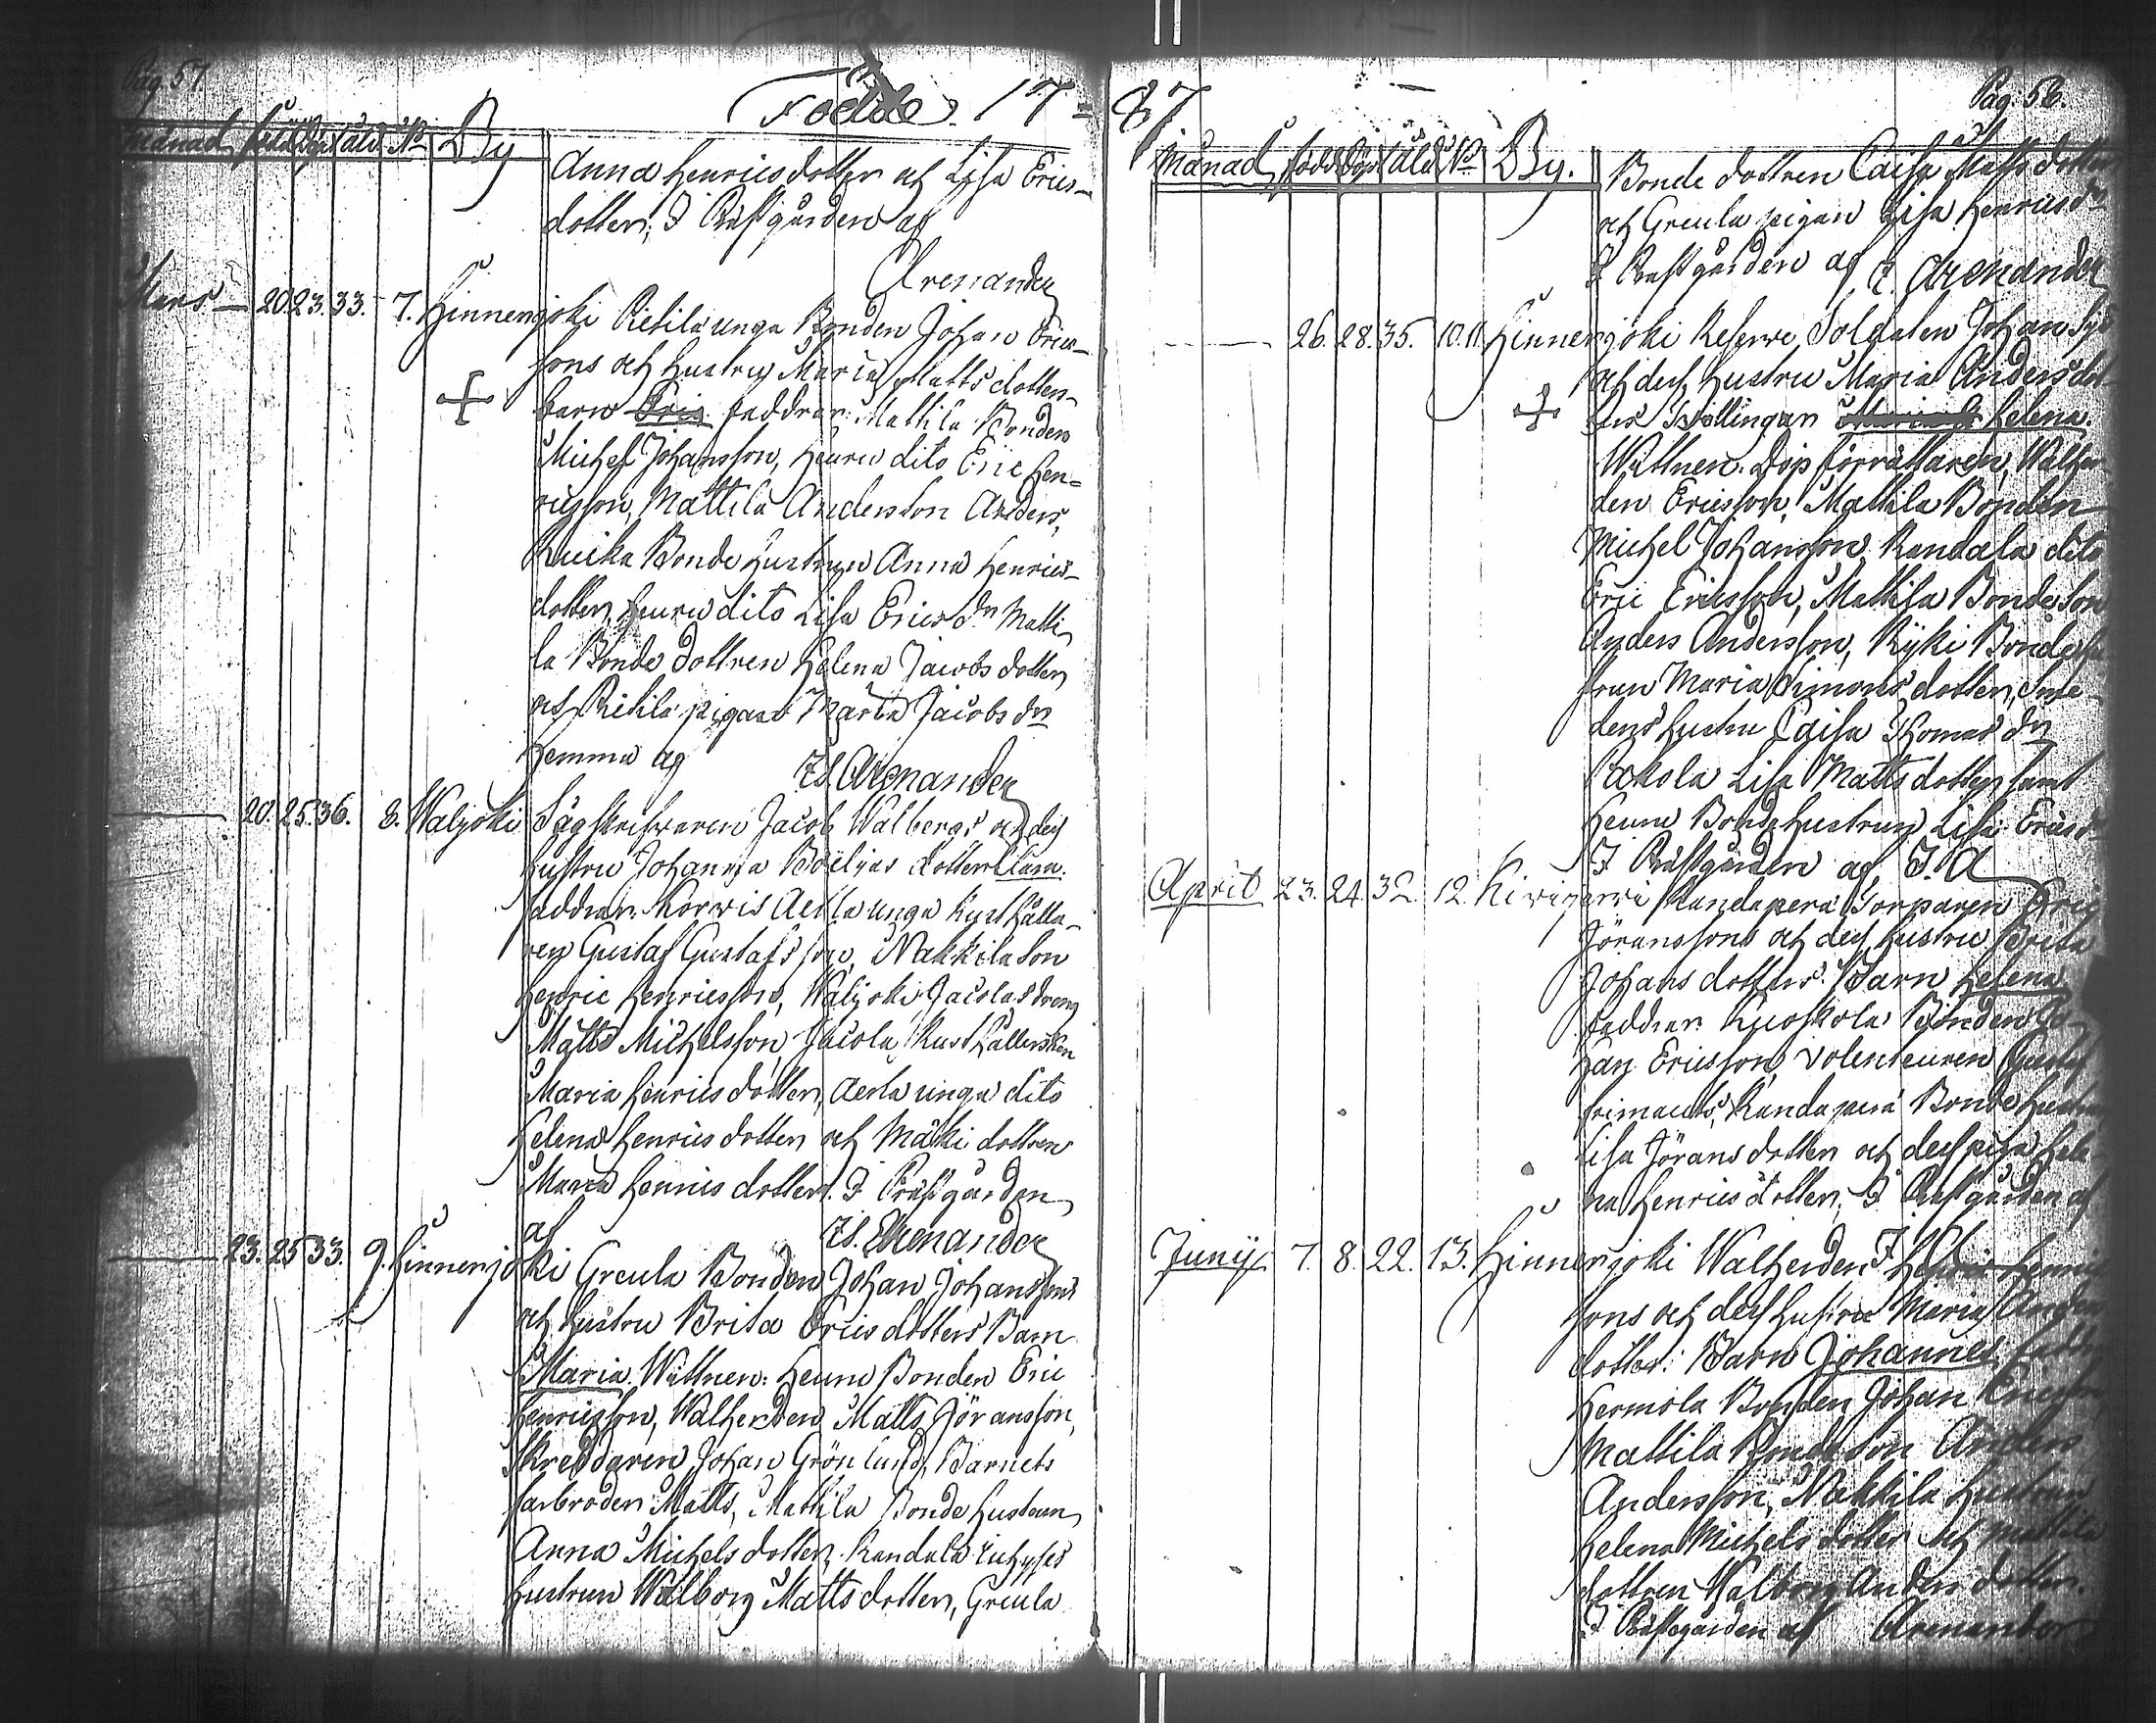 Pag. 57.
Födde 17=
Månad född döpt åld No By
Anna Henricsdotter och Lisa Erics-
dotter, I Prästgården af
Arenander
Mars — 20. 23. 33. 7. Hinnerjoki Pietila unga Bonden Johan Erics-
sons och hustru Maria Mattsdotters
barn Eric faddrar: Mattila Bonden
Michel Johansson, Heuru dito Eric Hen-
ricsson, Mattila Anderson Anders,
Ruika Bonde hustrun Anna Henrics-
dotter, Heuru dito Lisa Erics dr Matti-
la Bonde dottren Helena Jacobsdotter
och Pietila pigan Maria Jacobs dr
hemma af Is. Arenander
20. 25. 36. 8. Waljoki Sågskrifvaren Jacob Walbergs och dess
hustru Johanna Boelijas dotter Clara.
faddrar: Korvis Aerla unga Rusthålla-
ren Gustaf Gustafsson, Nakkila Son
Henric Henricsson, Waljoki Jacolas dreng
Matts Michelsson, Jacola Rusthållerskan
Maria Henricsdotter, Aerla unga dito
Helena Henricsdotter och Mäki dottren
Maria Henricsdotter. I Prästgården
af Is. Arenander
23. 25. 33. 9. Hinnerjoki Greula Bonden Johan Johanssons
och hustru Brita Ericsdotters Barn
Maria. Wittnen: Heuru Bonden Eric
Henricsson, Walherden Matts Jöransson,
Skreddaren Johan Grönlund, Barnets
farbroder Matts, Mattila Bonde hustrun
Anna Michelsdotter, Randala
hustrun Walborg Mattsdotter, Greula
87
Pag. 58.
Månad född döpt åld No By.
Bonde dottren Caisa Mattsdotter
och Greula pigan Lisa Henrics dr
I Prästgården af I. Arenander
26. 28. 35. 10.11. Hinnerjoki Reserve Soldaten Johan
och dess hustru Maria Andersdot-
ters Twillingar Helena.
Wittnen. Dop förrättaren, Walher-
den Ericsson, Mattila Bonden
Michel Johansson, Randala dito
Eric Ericsson, Mattila Bonde Son
Anders Andersson, Kyki Bonde hu-
strun Maria Simonsdotter, Sme-
dens hustru Caisa Thomas dr
Lisa Mattsdotter samt
Heuru Bonde hustrun Lisa Erics dr
I Prästgården af I. A
April 23. 24. 32. 12. Kiwijerwi Kandapera Torparen Eric
Jöranssons och dess hustru Brita
Johansdotters Barn Helena
faddrar: Kuoskola Bonden Jo-
han Ericsson, volenteuren Gustaf
Kandapera Bonde hustrun
Lisa Jöransdotter och dess piga Hele-
na Henricsdotter, I Prästgården af
Junij 7. 8. 22. 13. Hinnerjoki Walherden
sons och dess hustru Maria Anders
dotters Barn Johannes
Hermola Bonden Johan Ericsson
Mattila Bonde Son Anders
Andersson, Nakkila hustrun
Helena Michelsdotter och Mattila
dottren Walborg Andersdotter.
I Prästegården af Arenander